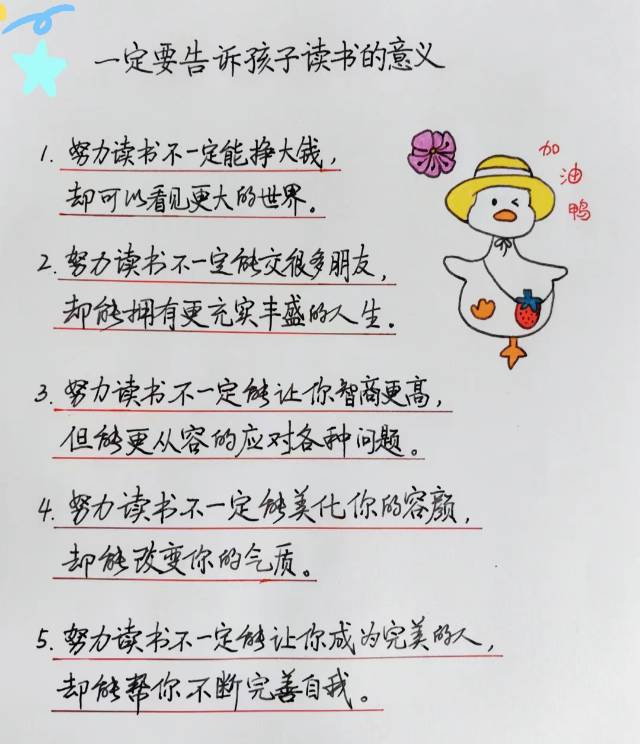 一定要告诉孩子读书的意义
1. 努力读书不一定能挣大钱,
却可以看见更大的世界。
2. 努力读书不一定能交很多朋友,
却能拥有更充实丰盛的人生.
3. 努力读书不一定能让你智商更高,
但能更从容的应对各种问题。
4. 努力读书不一定能美化你的容颜,
却能改变你的气质。
5. 努力读书不一定能让你成为完美的人,
却能帮你不断完善自我。
加
油
鸭